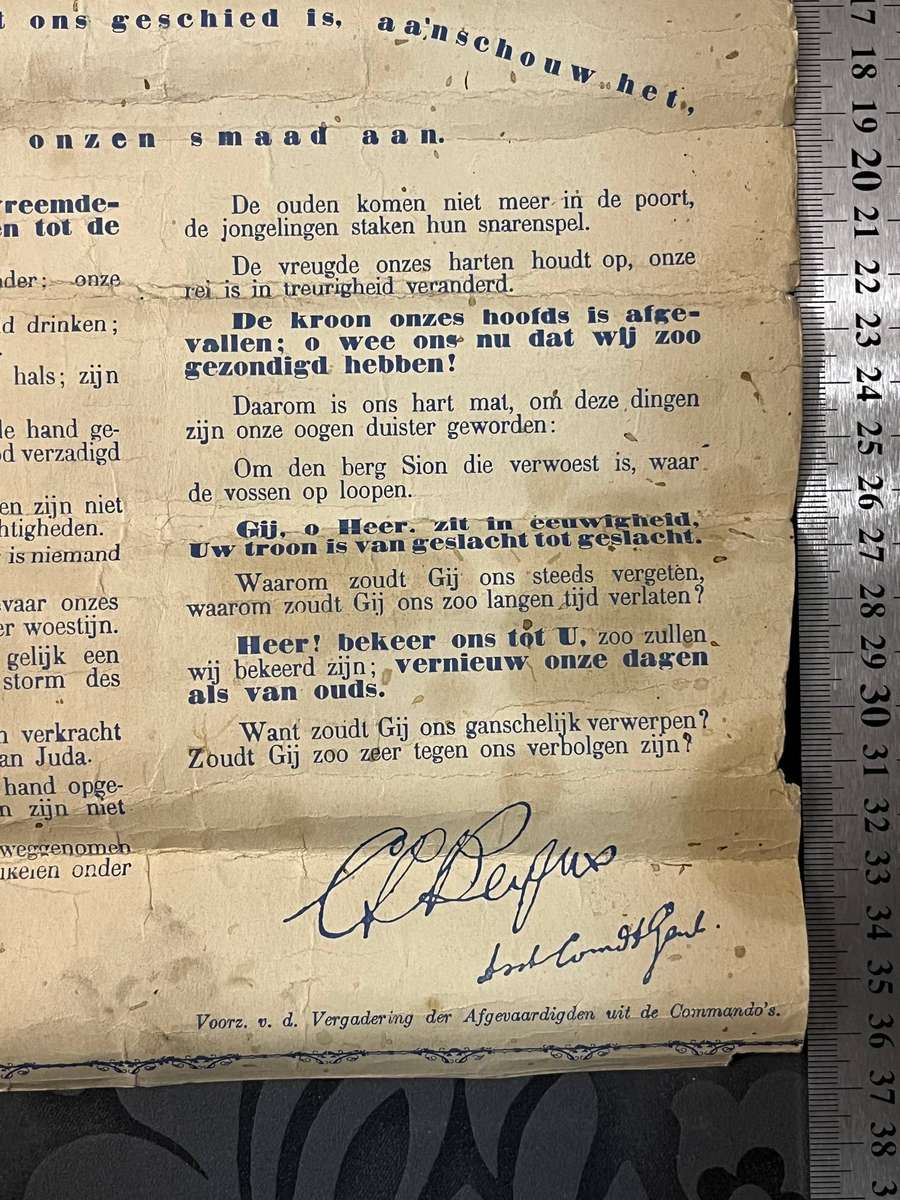 t ons geschied is, aanschouw het,
onzen smaad aan.
vreemde-
en tot de
nder; onze
d drinken;
hals; zijn
de hand ge-
od verzadigd
en zijn niet
htigheden.
is niemand
evaar onzes
er woestijn.
gelijk een
storm des
n verkracht
an Juda.
hand opge-
n zijn niet
weggenomen
ikelen onder
De ouden komen niet meer in de poort,
de jongelingen staken hun snarenspel.
De vreugde onzes harten houdt op, onze
rei is in treurigheid veranderd.
De kroon onzes hoofds is afge-
vallen; o wee ons nu dat wij zoo
gezondigd hebben!
Daarom is ons hart mat, om deze dingen
zijn onze oogen duister geworden:
Om den berg Sion die verwoest is, waar
de vossen op loopen.
Gij, o Heer, zit in eeuwigheid,
Uw troon is van geslacht tot geslacht.
Waarom zoudt Gij ons steeds vergeten,
waarom zoudt Gij ons zoo langen tijd verlaten?
Heer! bekeer ons tot U, zoo zullen
wij bekeerd zijn; vernieuw onze dagen
als van ouds.
Want zoudt Gij ons ganschelijk verwerpen?
Zoudt Gij zoo zeer tegen ons verbolgen zijn?
C F Beyers
Asst Comdt Genl.
Voorz. v. d. Vergadering der Afgevaardigden uit de Commando's.
17
18
19
20
21
22
23
24
25
26
27
28
29
30
31
32
33
34
35
36
37
38